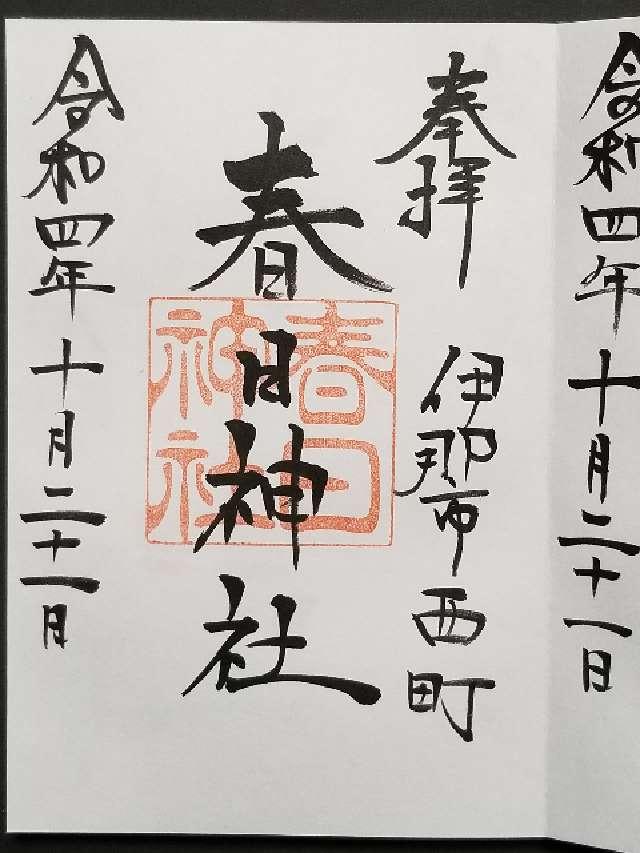 令和四年十月二十一日
奉拝
伊那市西町
春日神社
春日神社
令和四年十月二十一日